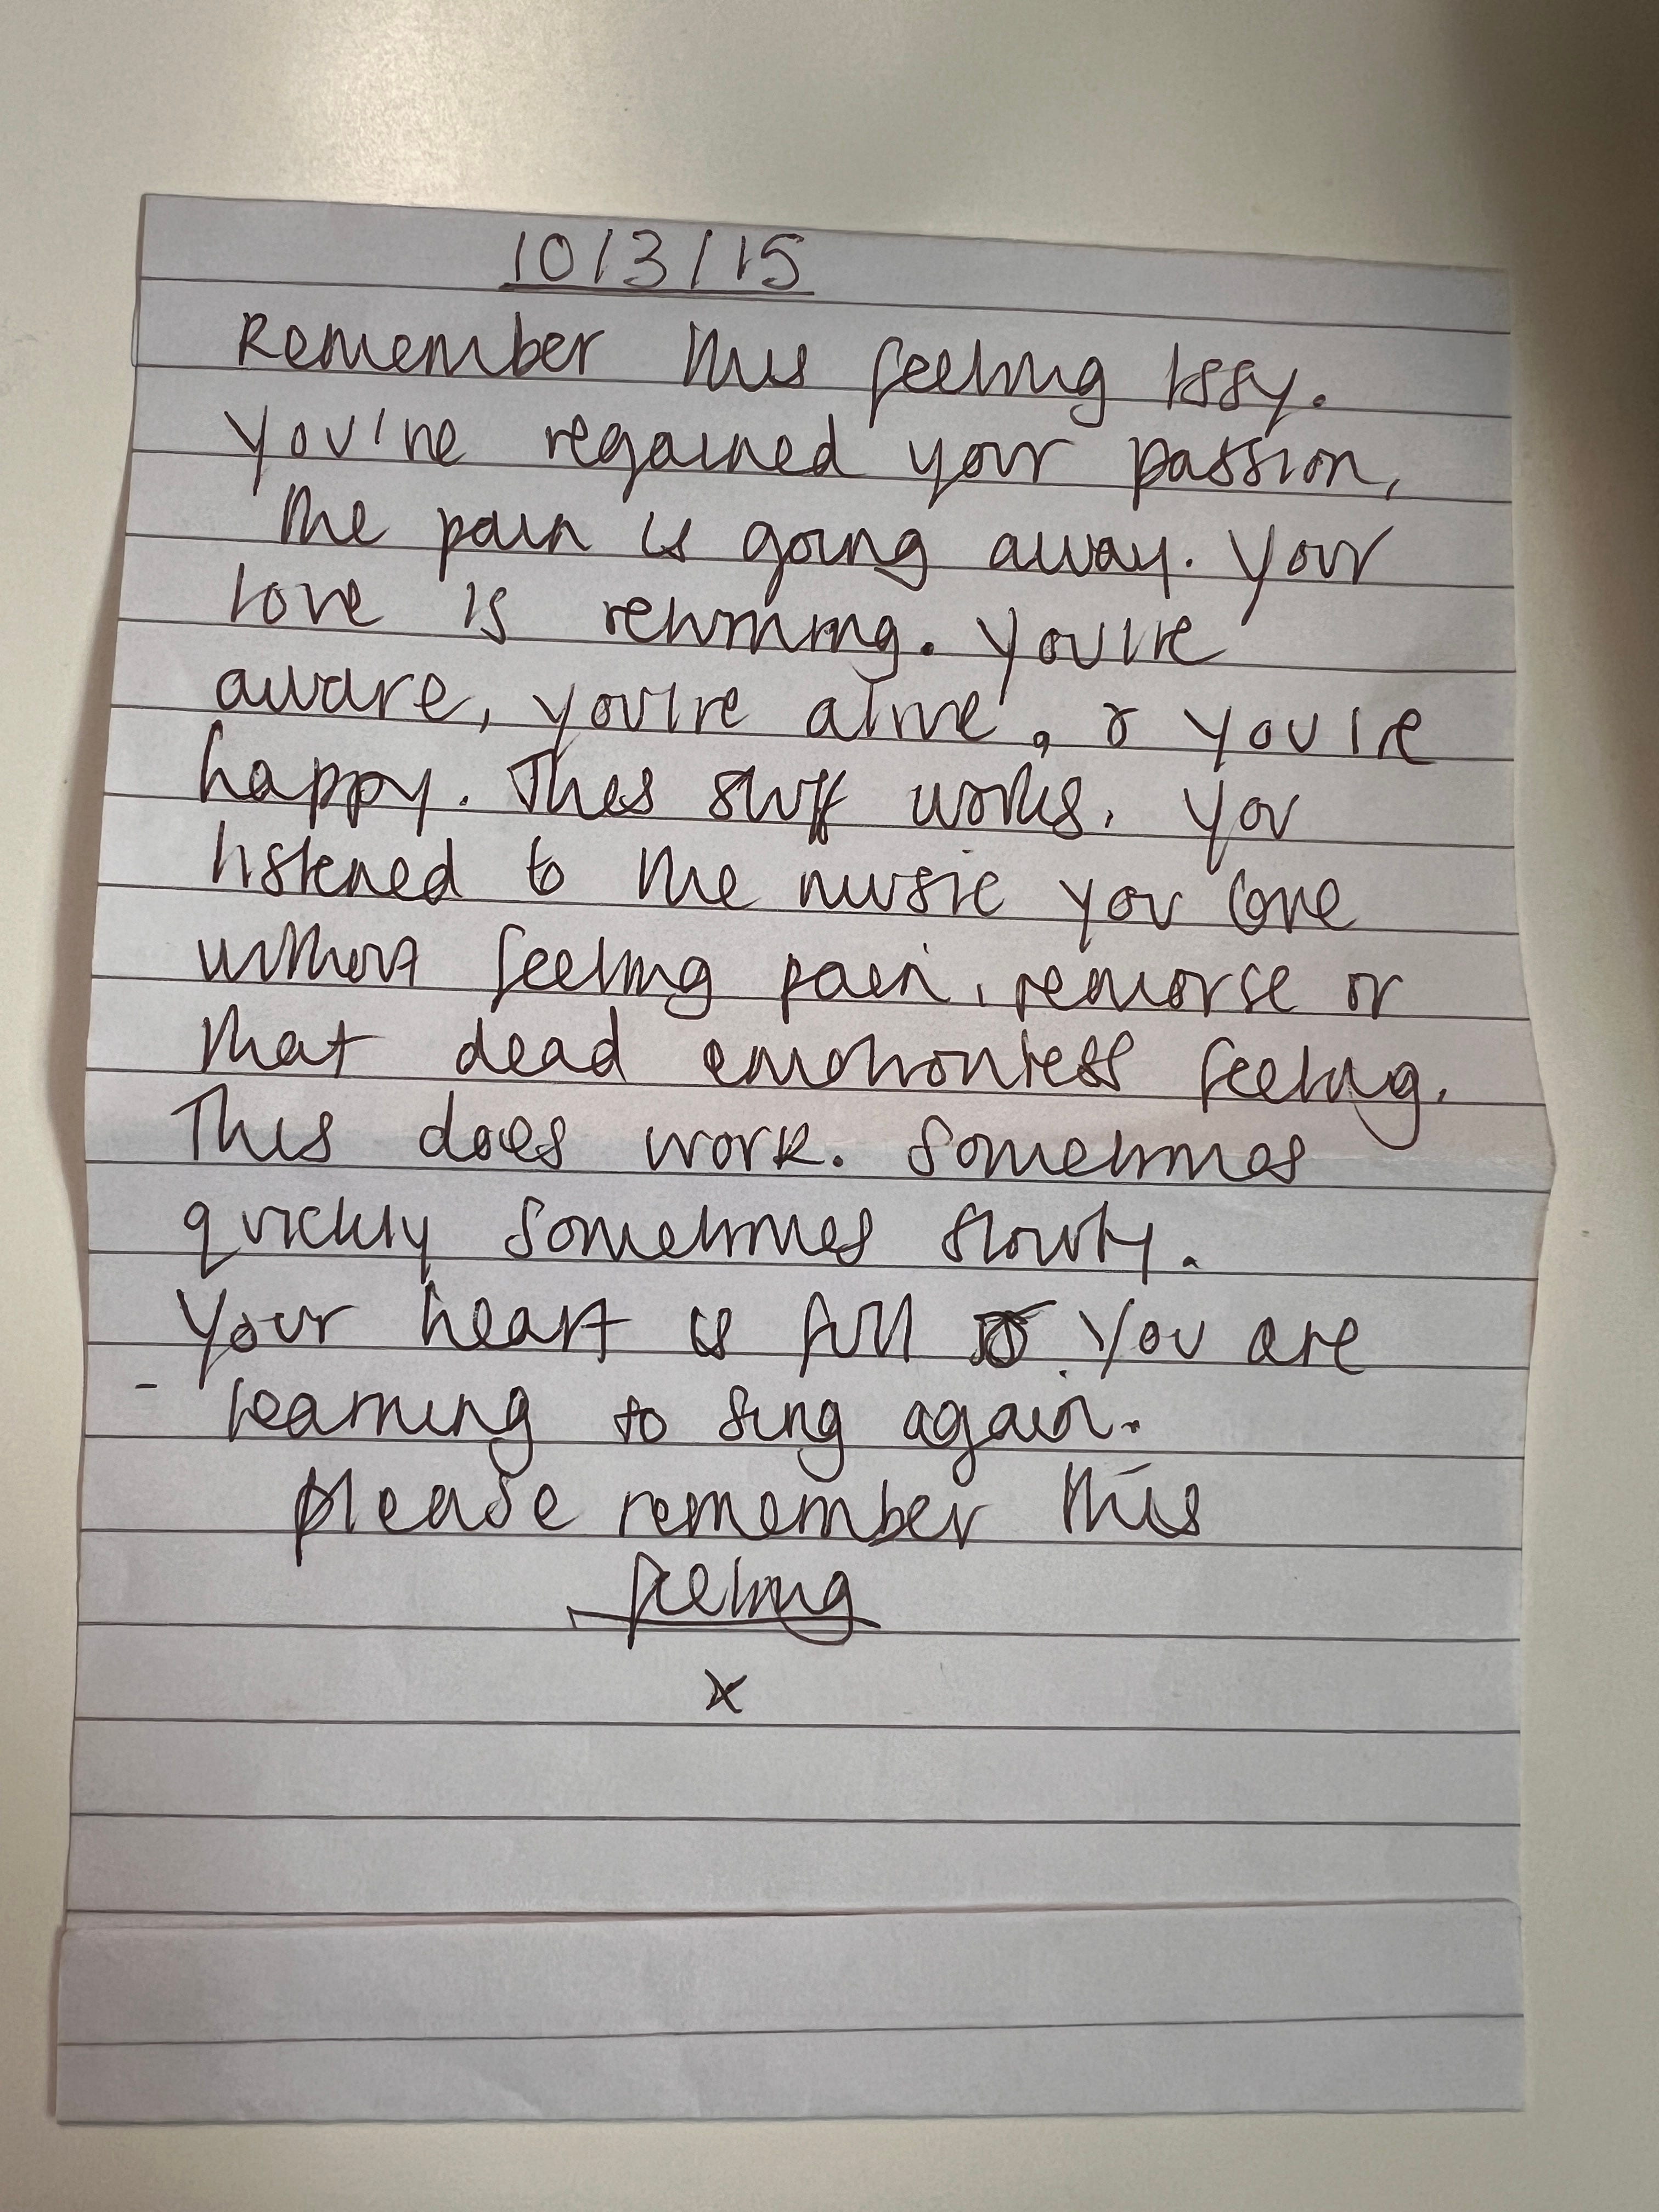 10/3/15
Remember this feeling Issy.
You've regained your passion,
the pain is going away. Your
love is returning. You're
aware, you're alive, & you're
happy. This stuff works. You
listened to the music you love
without feeling pain, remorse or
that dead emotionless feeling.
This does work. Sometimes
quickly sometimes slowly.
Your heart is full. You are
- learning to sing again.
please remember this
feeling
x